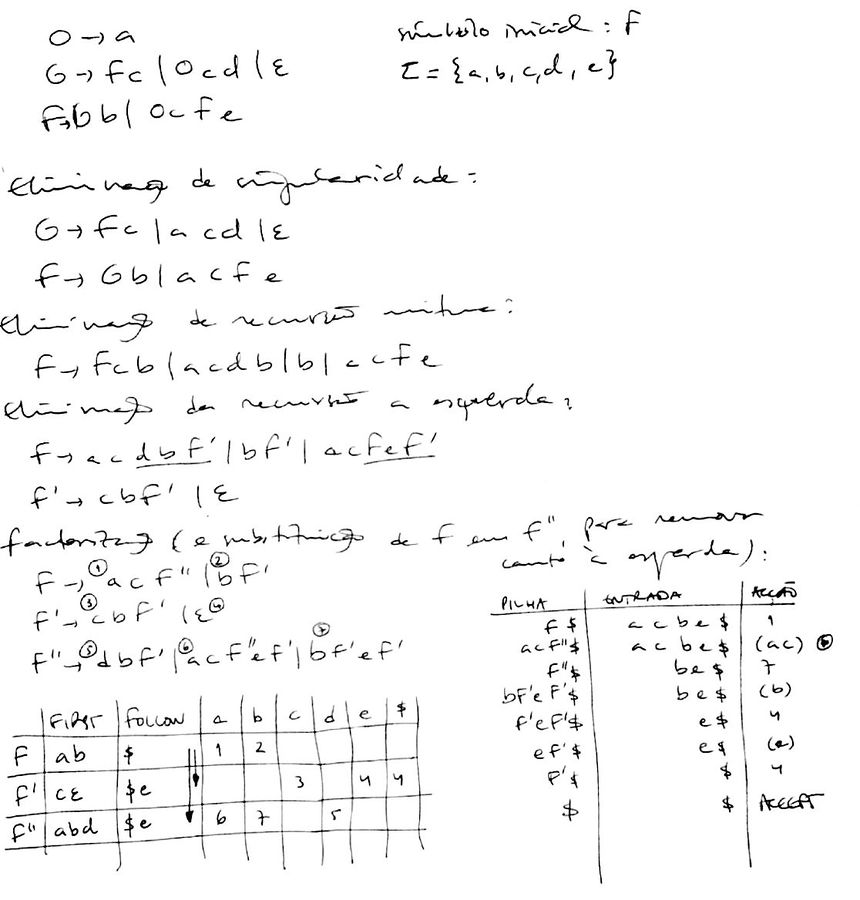 O → a
G → Fc | Ocd | ε
F → Gb | OcFe
símbolo inicial : F
Σ = {a, b, c, d, e}
Eliminação de singularidade :
G → Fc | acd | ε
F → Gb | acFe
Eliminação de recursão mútua :
F → Fcb | acdb | b | acFe
Eliminação da recursão à esquerda :
F → acdbF' | bF' | acFeF'
F' → cbF' | ε
Factorização (e substituição de F em F'', para remover
canto à esquerda) :
F → ① acF'' | ② bF'
F' → ③ cbF' | ε ④
F'' → ⑤ dbF' | ⑥ acF''eF' | ⑦ bF'eF'
FIRST FOLLOW a b c d e $
F ab $ 1 2
F' cε $e 3 4 4
F'' abd $e 6 7 5
PILHA ENTRADA ACÇÃO
F $ acbe$ 1
acF''$ acbe$ (ac)
F''$ be$ 7
bF'eF'$ be$ (b)
F'eF'$ e$ 4
eF'$ e$ (e)
F'$ $ 4
$ $ ACCEPT